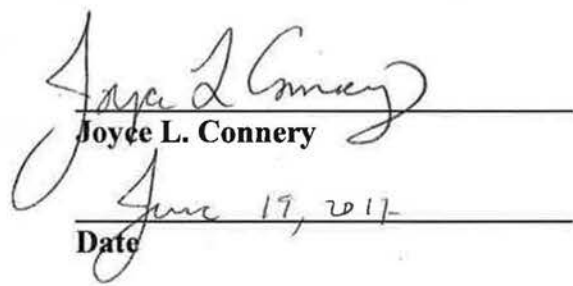 Joyce L Connery
Joyce L. Connery
June 19, 201
Date